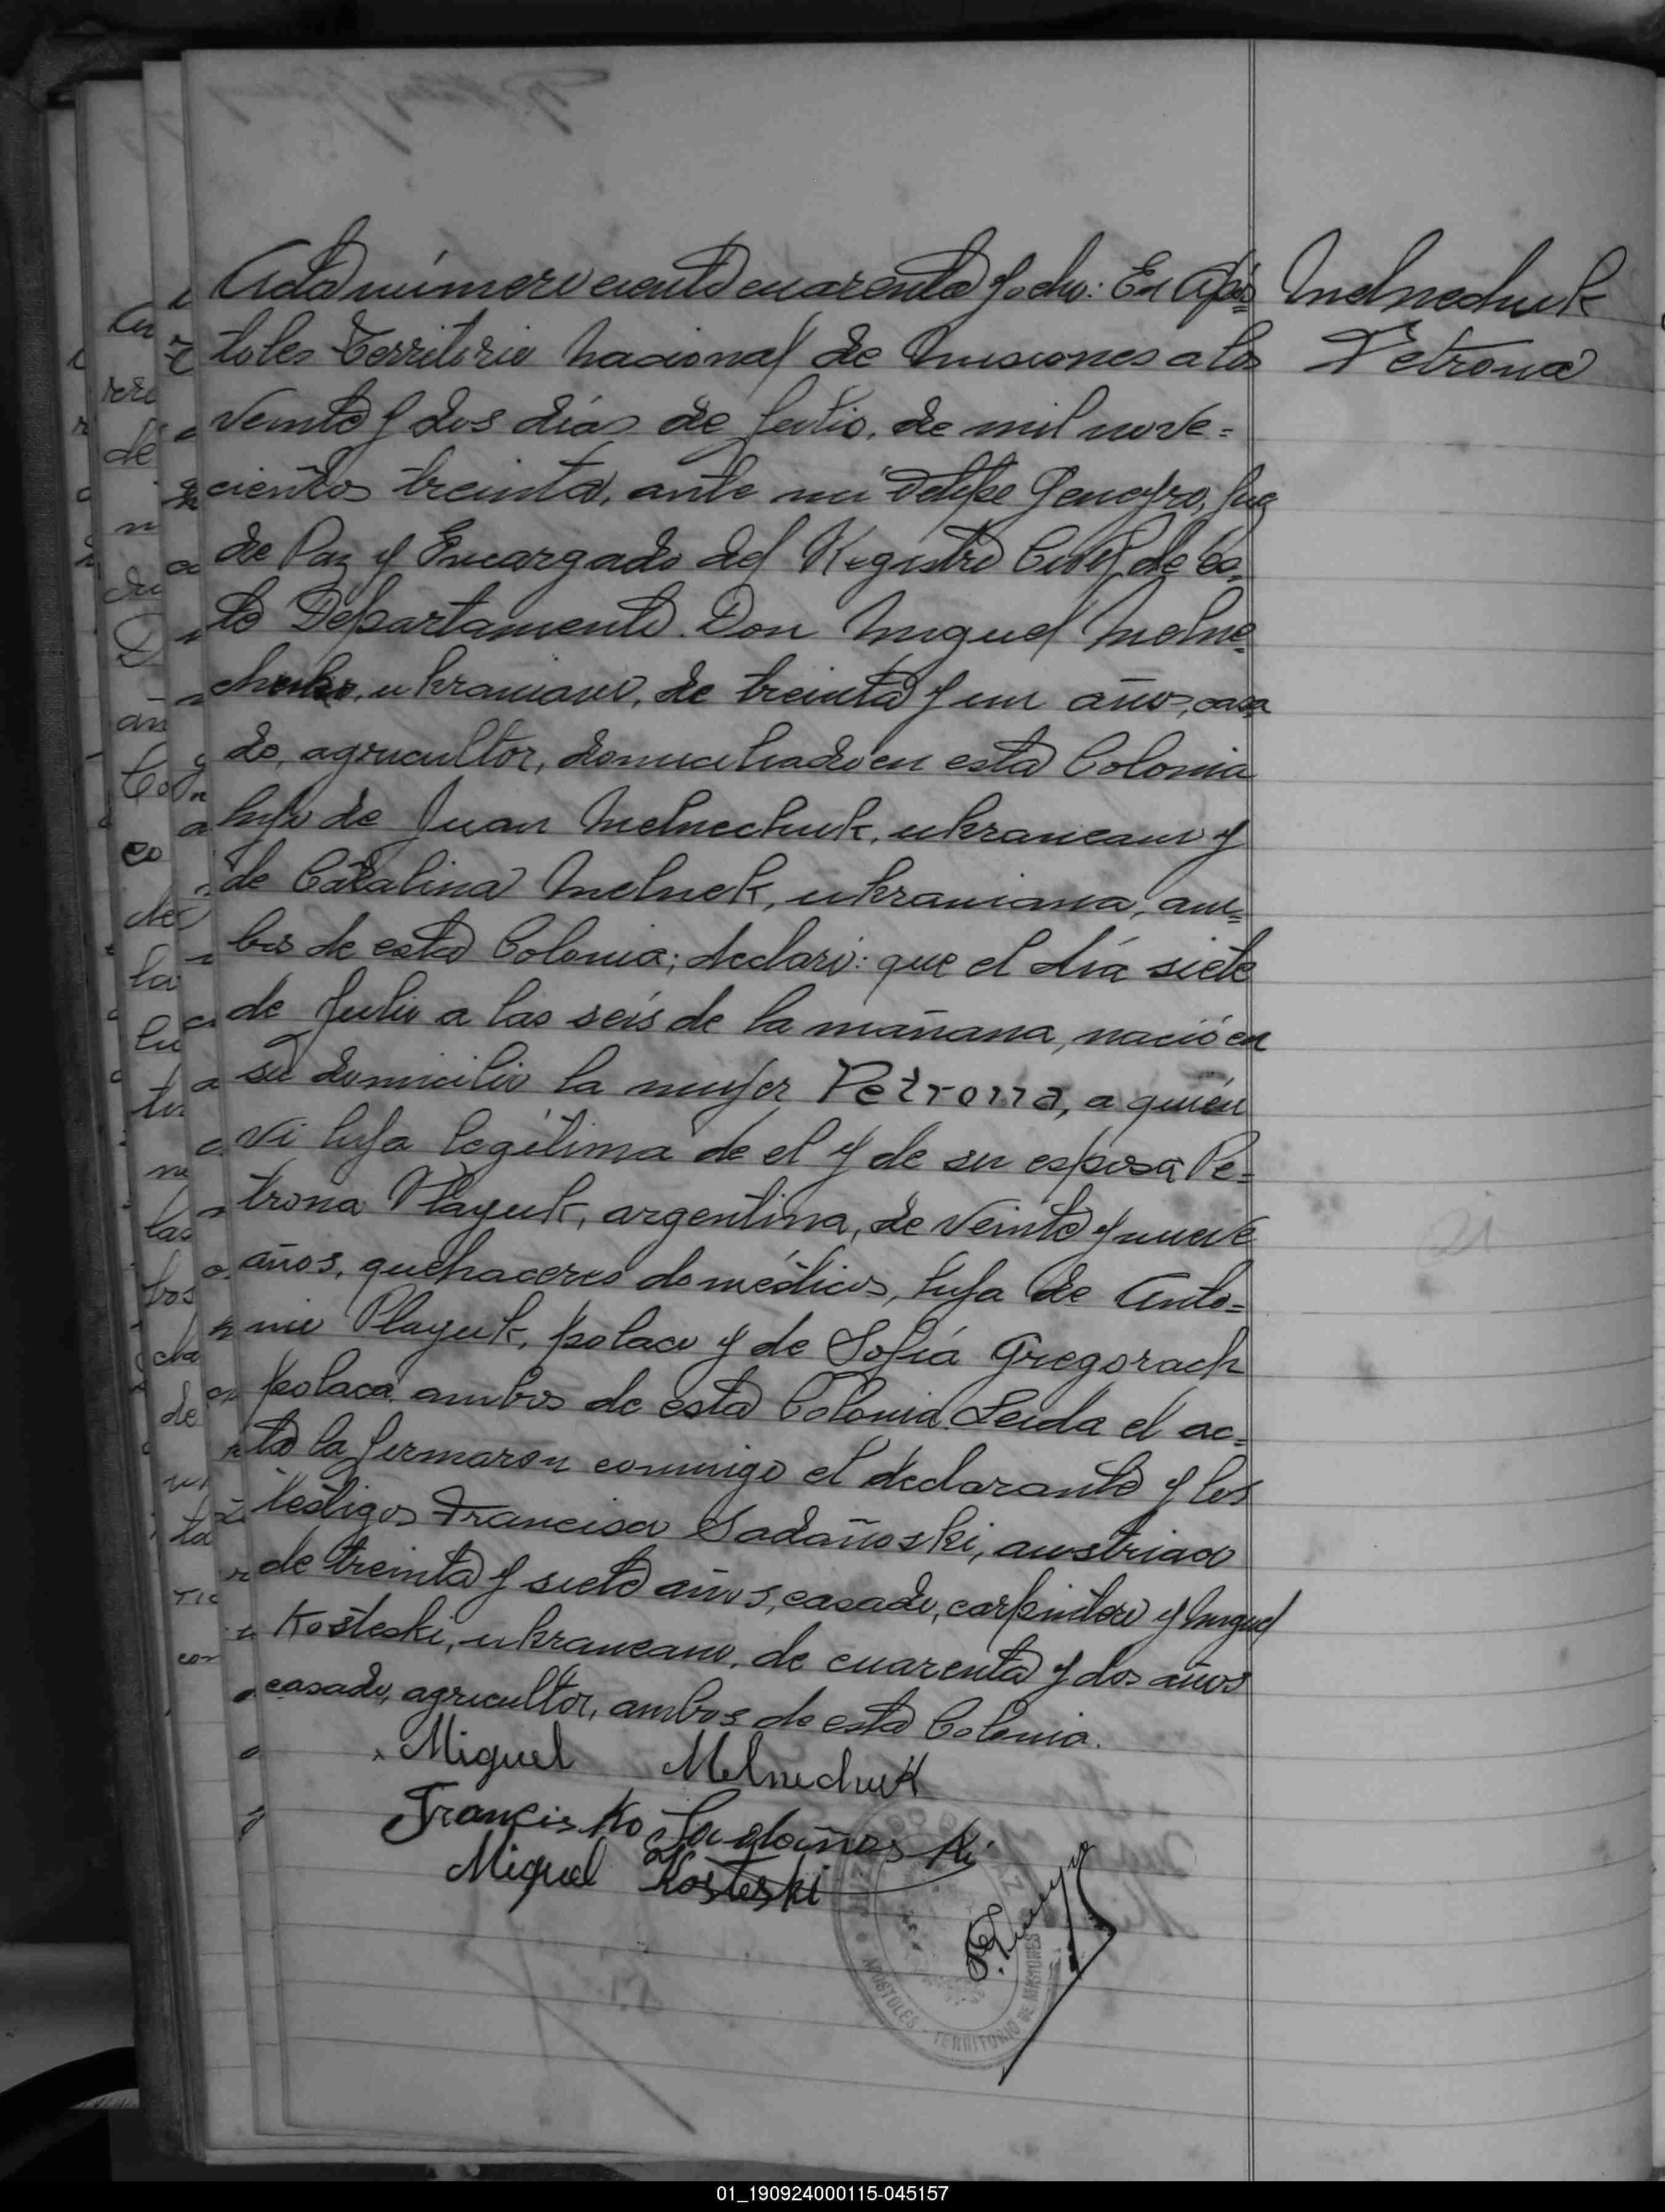 Acta número ciento cuarenta y ocho: En Após=
toles Territorio Nacional de Misiones a los
veinte y dos días de Julio, de mil nove=
cientos treinta, ante mi Felipe Genesyro, Juez
de Paz y Encargado del Registro Civil de es=
te Departamento. Don Miguel Melne=
chuk, ukraniano, de treinta y un años, casa
do, agricultor, domiciliado en esta Colonia
hijo de Juan Melnechuk, ukraneano y
de Catalina Melnek, ukraniana, am=
bos de esta Colonia; declaró: que el día siete
de Julio a las seis de la mañana, nació en
su domicilio la mujer Petrona, a quién
vi hija legítima de el y de su esposa Pe=
trona Playuk, argentina, de veinte y nueve
años, quehaceres domésticos, hija de Anto=
nio Playuk, polaco y de Sofía Gregorach
polaca, ambos de esta Colonia. Leida el ac=
ta la firmaron conmigo el declarante y los
testigos Francisco Sadañoski, austriaco
de treinta y siete años, casado, carpintero y Miguel
Kosteski, ukraneano, de cuarenta y dos años
casado, agricultor, ambos de esta Colonia.
Melnechuk
Petrona
Miguel Melnechuk
Francisko Sadoñoski
Miguel Kosteski
APOSTOLES - TERRITORIO DE MISIONES
21
01_190924000115-045157